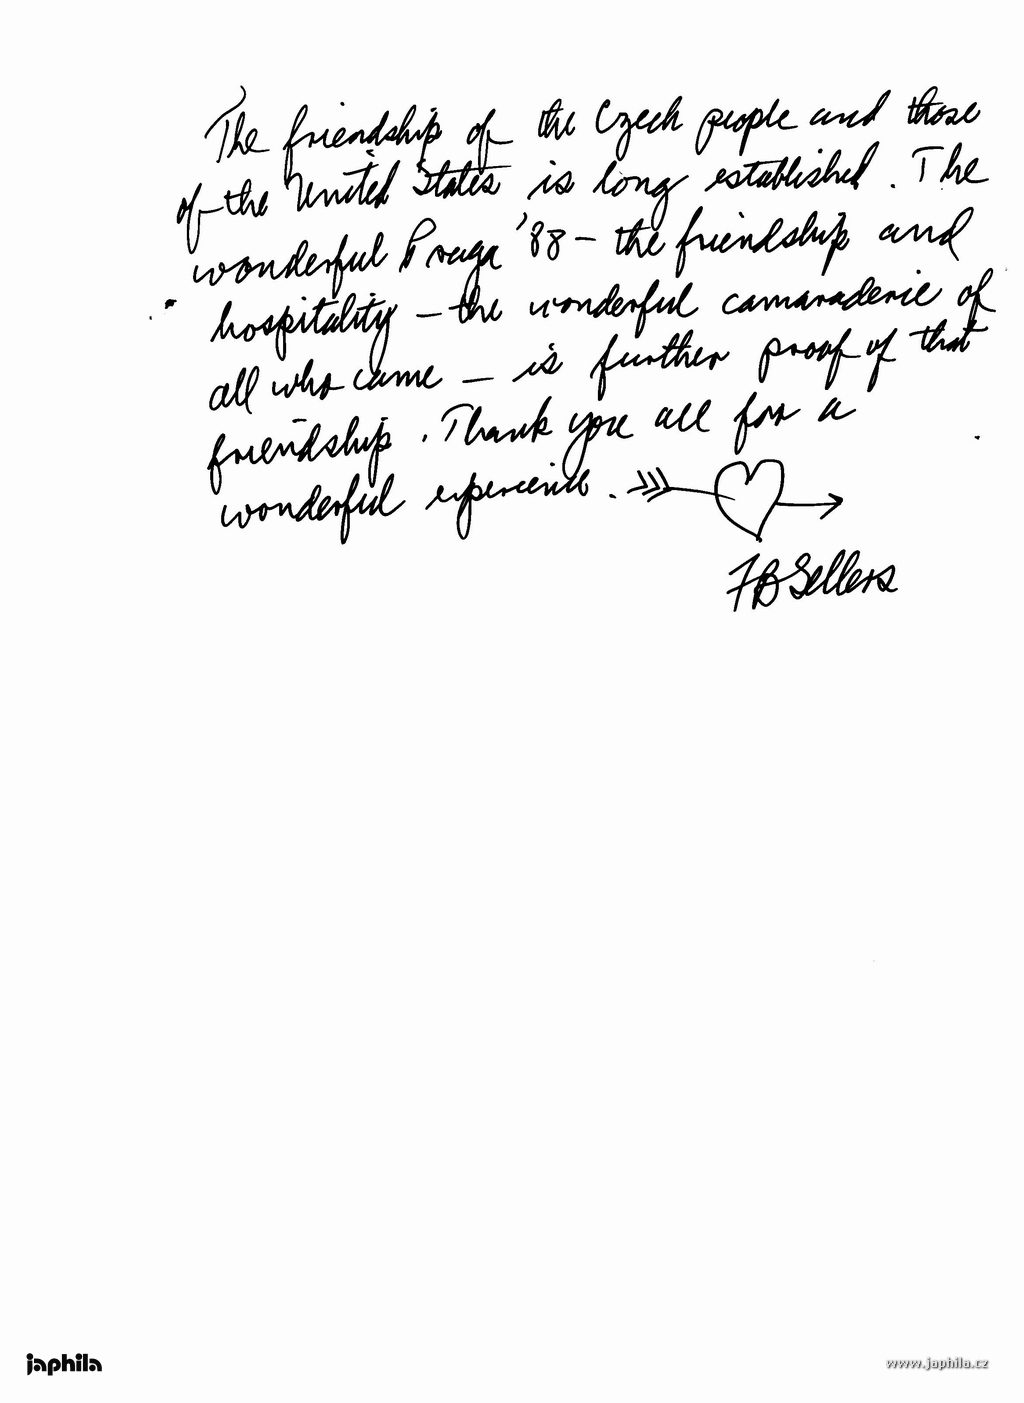 The friendship of the Czech people and those
of the United States is long established. The
wonderful Praga '88 – the friendship and
hospitality – the wonderful camaraderie of
all who came – is further proof of that
friendship. Thank you all for a
wonderful experience.
FB Sellers
japhila
www.japhila.cz